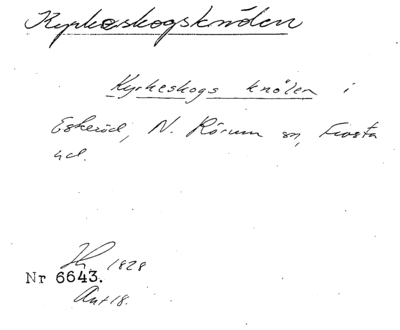 Kyrkeskogsknölen
Kyrkeskogs knölen i
Eskeröd, N. Rörum sn, Frosta
hd.
1828
Nr 6643.
Akt 18.